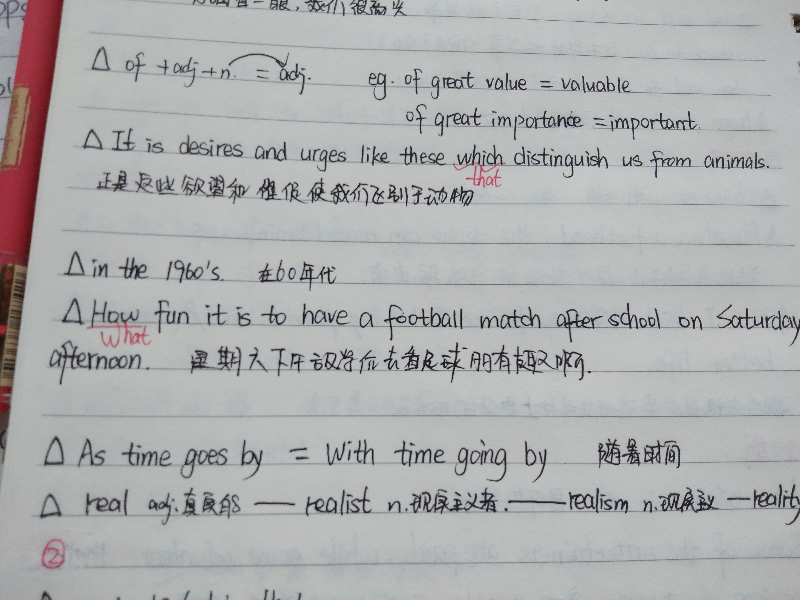 我们很高兴
△ of +adj+n. = adj. eg. of great value = valuable
of great importance = important.
△ It is desires and urges like these which distinguish us from animals.
that
正是这些欲望和催促使我们区别于动物
△ in the 1960's. 在60年代
△ How fun it is to have a football match after school on Saturday
What
afternoon. 星期六下午放学后去看足球朋有趣又啊.
△ As time goes by = With time going by 随着时间
△ real adj.真实的 — realist n.现实主义者. — realism n.现实主义 — reality
②